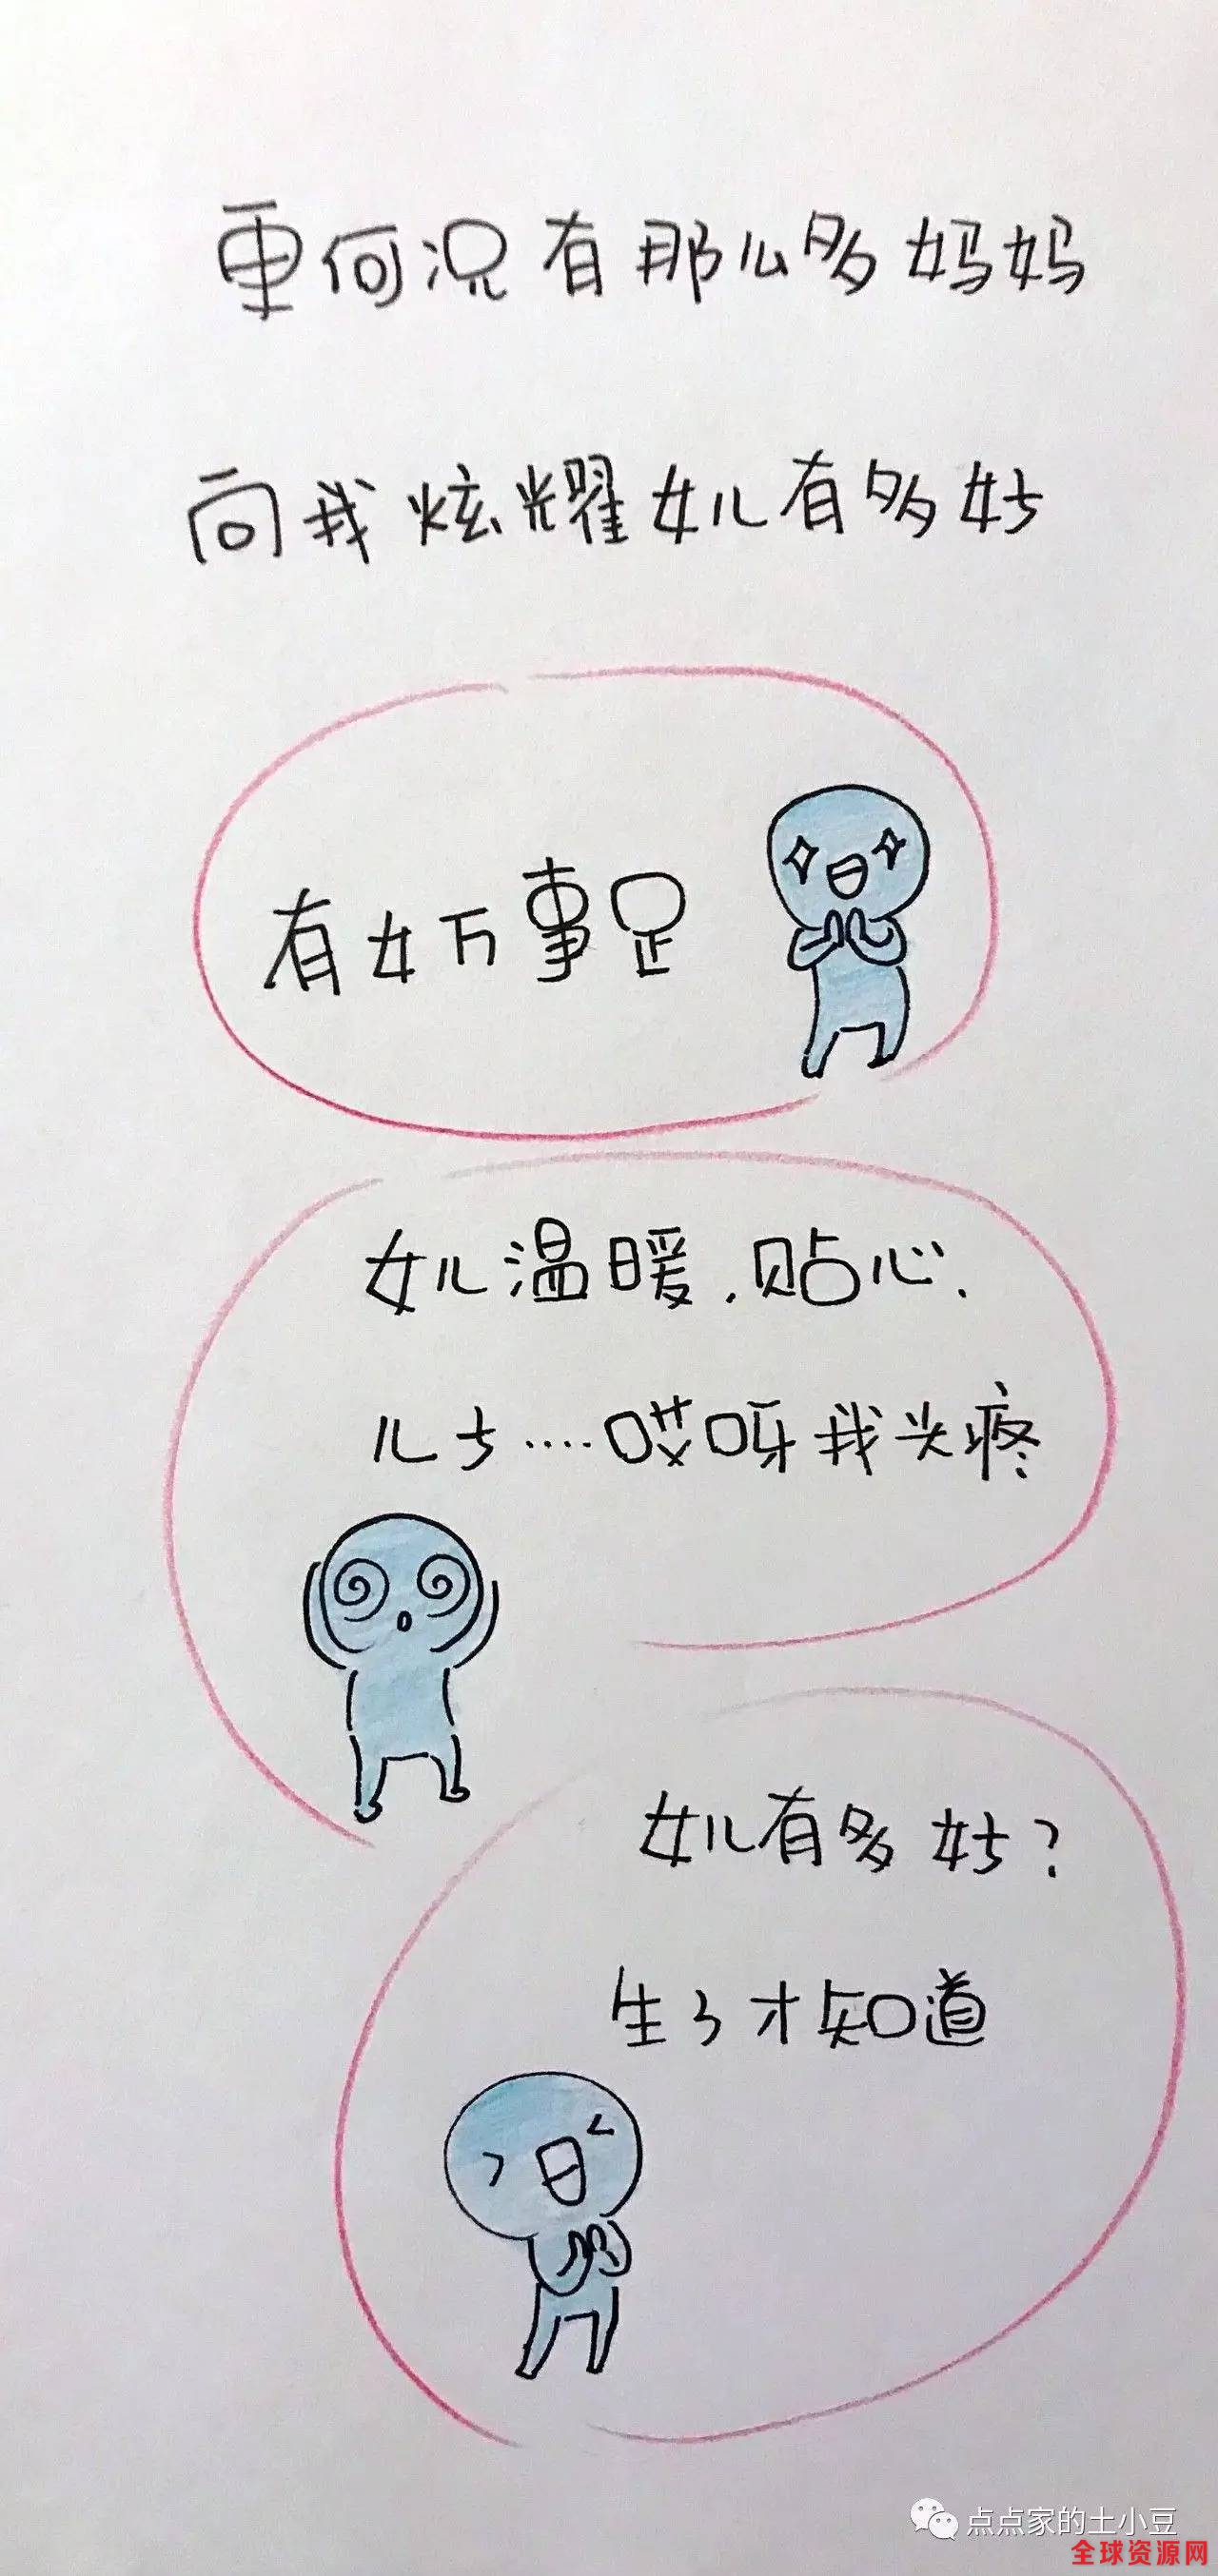 更何况有那么多妈妈
向我炫耀女儿有多好
有女万事足
女儿温暖.贴心.
儿子....哎呀我头疼
女儿有多好?
生了才知道
点点家的土小豆
全球资源网